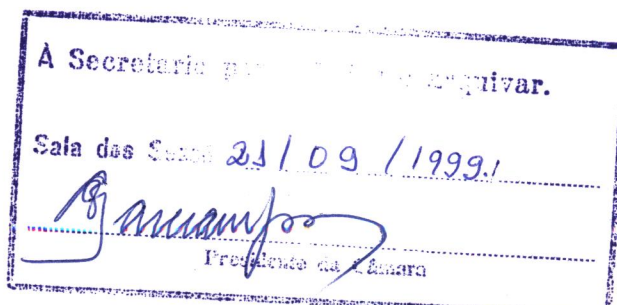 À Secretaria arquivar.
Sala das Sessões 21 / 09 / 1999.
Presidente da Câmara